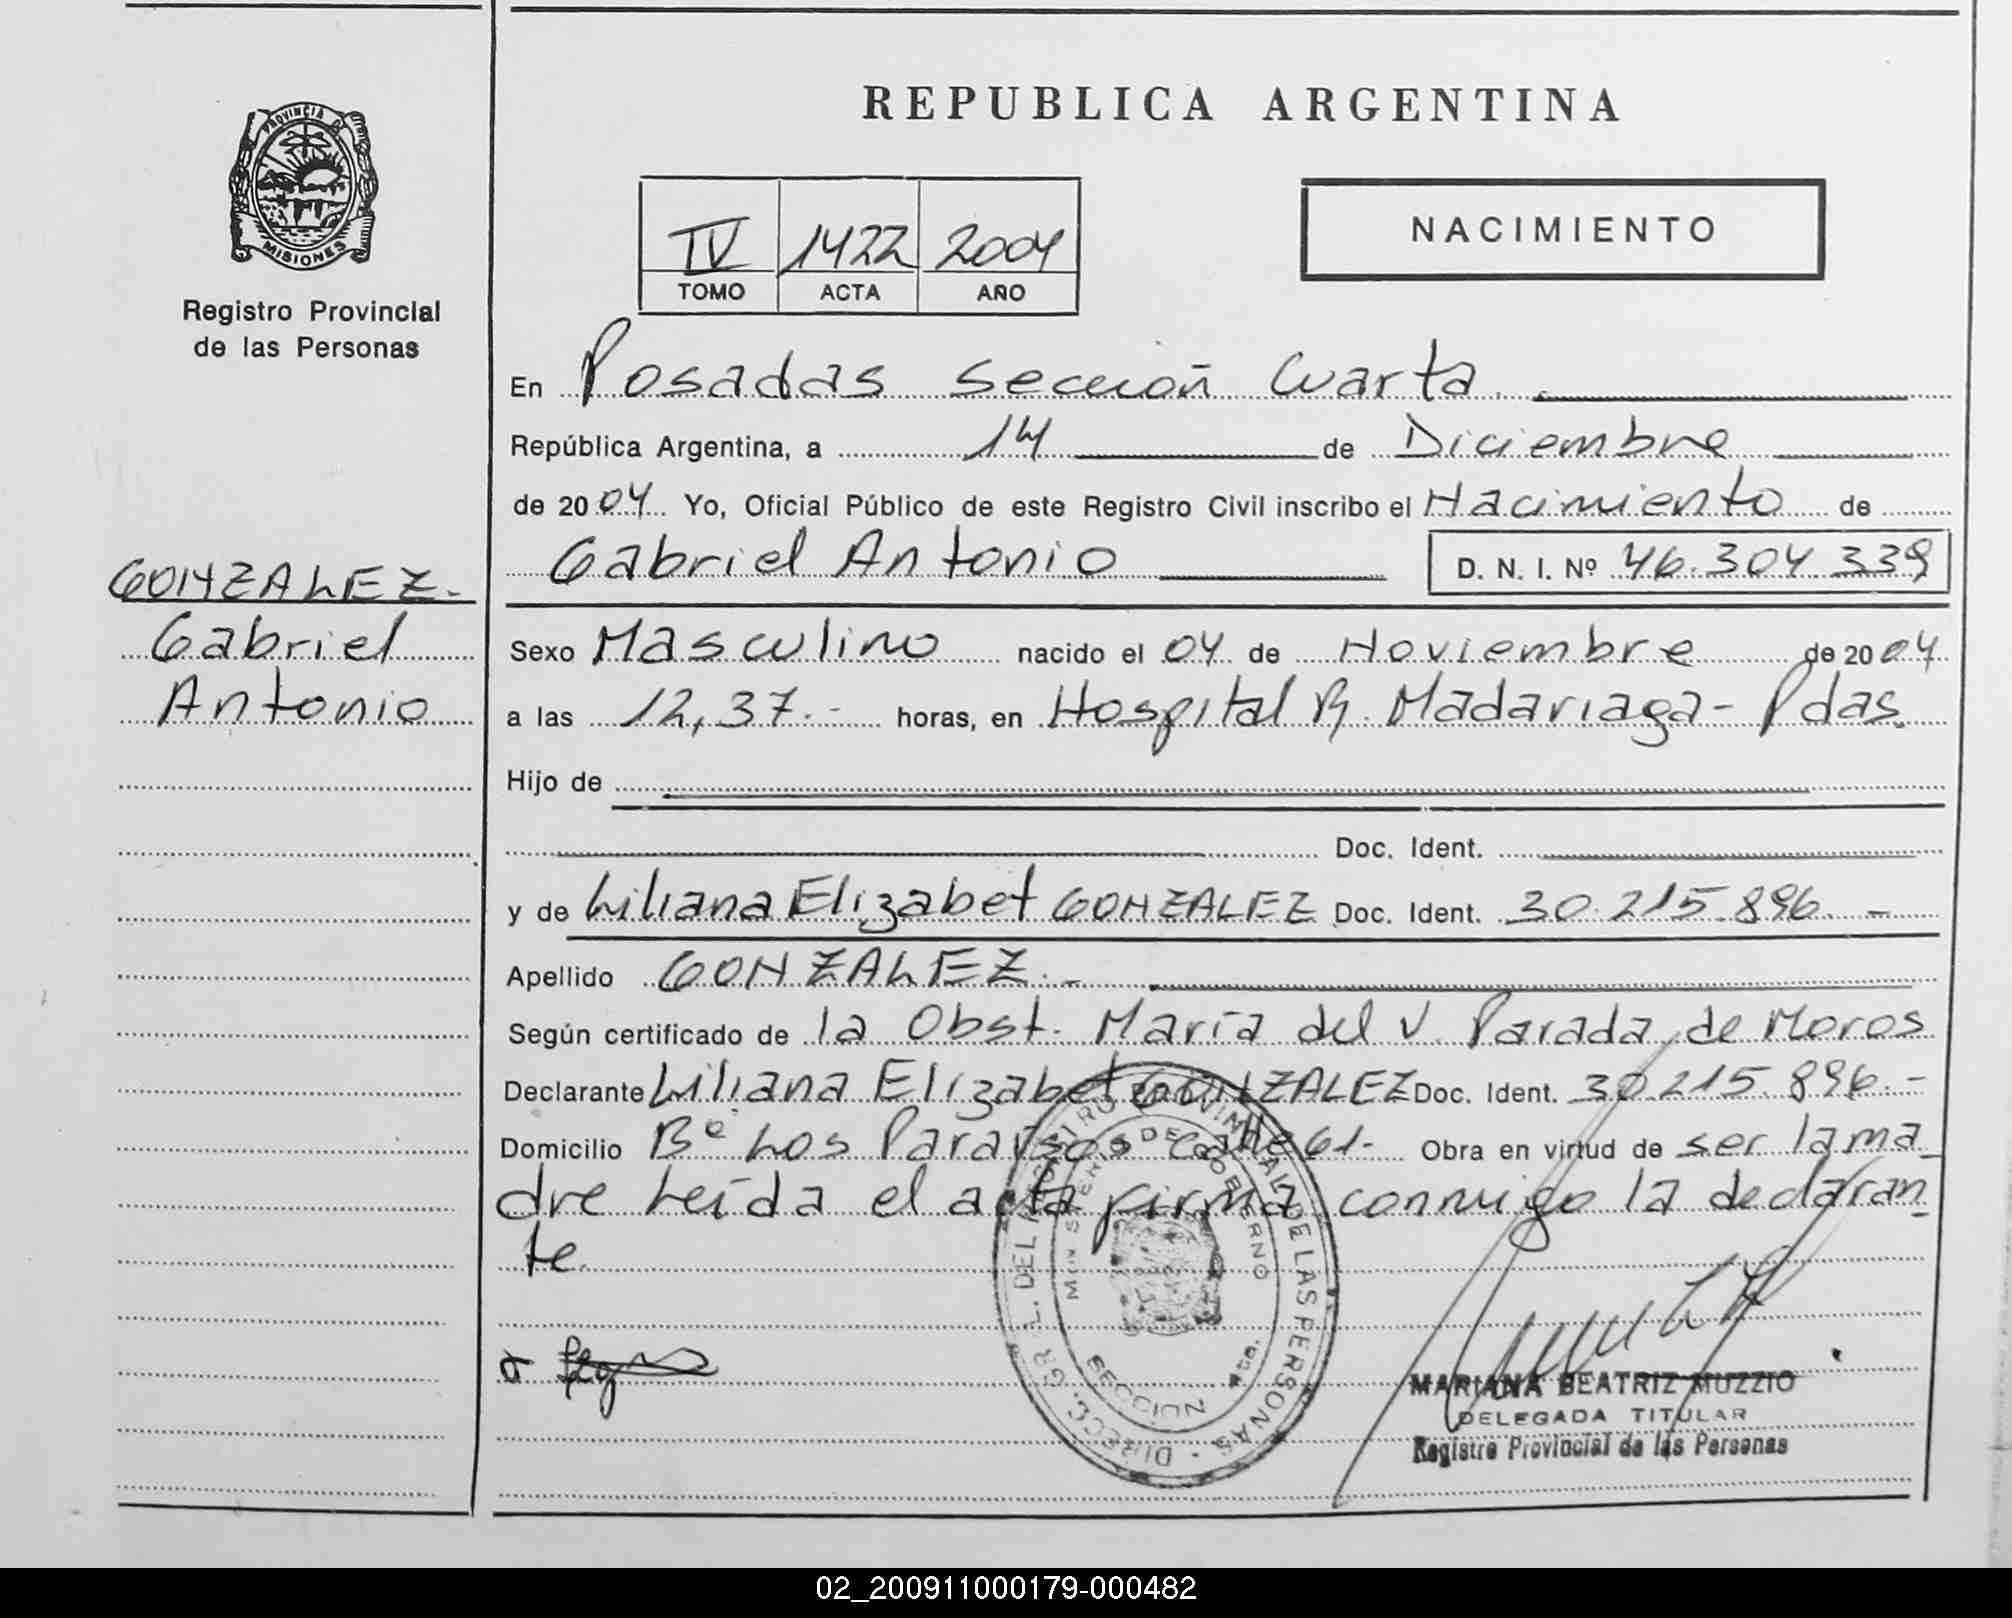 PROVINCIA DE
MISIONES
Registro Provincial
de las Personas
GONZALEZ.-
Gabriel
Antonio
REPUBLICA ARGENTINA
IV 1422 2004
TOMO ACTA AÑO
NACIMIENTO
En Posadas Sección Cuarta
República Argentina, a 14 de Diciembre
de 2004 Yo, Oficial Público de este Registro Civil inscribo el Nacimiento de
Gabriel Antonio D. N. I. Nº 46.304 339
Sexo Masculino nacido el 04 de Noviembre de 2004
a las 12,37.- horas, en Hospital R. Madariaga - Pdas.
Hijo de
Doc. Ident.
y de Liliana Elizabet GONZALEZ Doc. Ident. 30.215.896.-
Apellido GONZALEZ.-
Según certificado de la Obst. María del V. Parada de Moros
Declarante Liliana Elizabet GONZALEZ Doc. Ident. 30.215.896.-
Domicilio Bº Los Paraísos calle 61.- Obra en virtud de ser la ma
dre Leída el acta firma conmigo la declaran
te.
DIRECC. GRAL. DEL REGISTRO PROVINCIAL DE LAS PERSONAS
MINISTERIO DE GOBIERNO
SECCION 4ta.
MARIANA BEATRIZ MUZZIO
DELEGADA TITULAR
Registro Provincial de las Personas
02_200911000179-000482